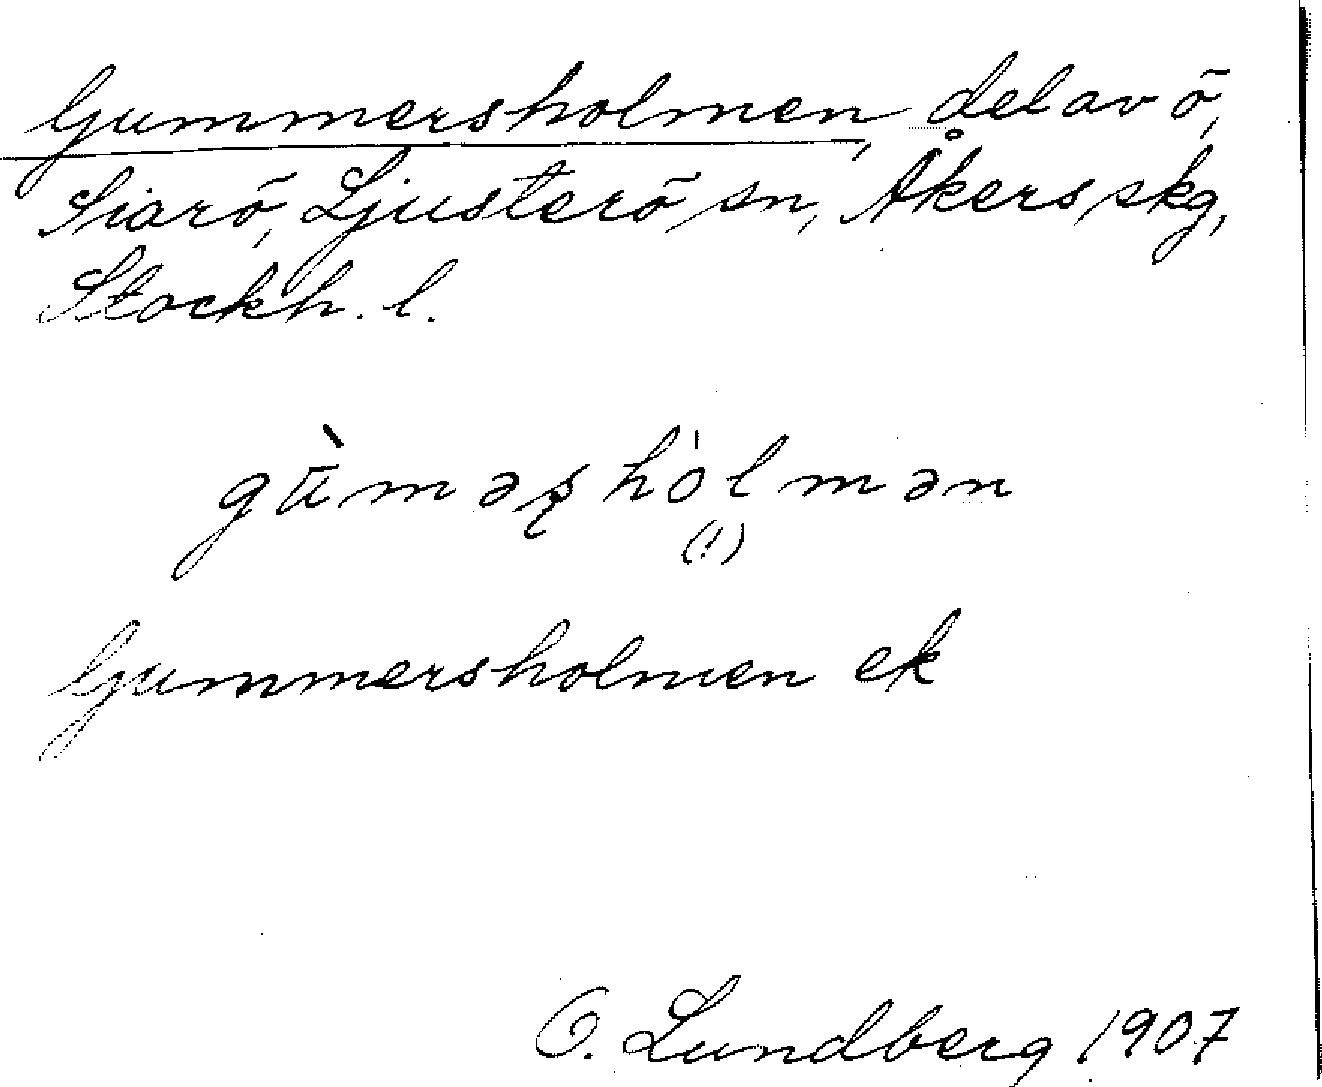 Gummersholmen, del av ö,
Siarö, Ljusterö sn, Åkers skg,
Stockh. l.
gu̇̀məʂhȯlmən
(!)
Gummersholmen ek
O. Lundberg 1907